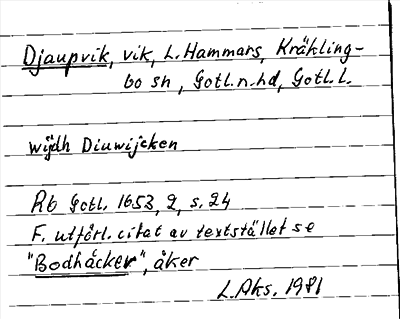 Djaupvik, vik, L. Hammars, Kräkling-
bo sn, Gotl. n. hd, Gotl. l.
wijdh Diuwijcken
Rb Gotl. 1653, 2, s. 24
F. utförl. citat av textstället se
"Bodhåcker", åker
L. Aks. 1981